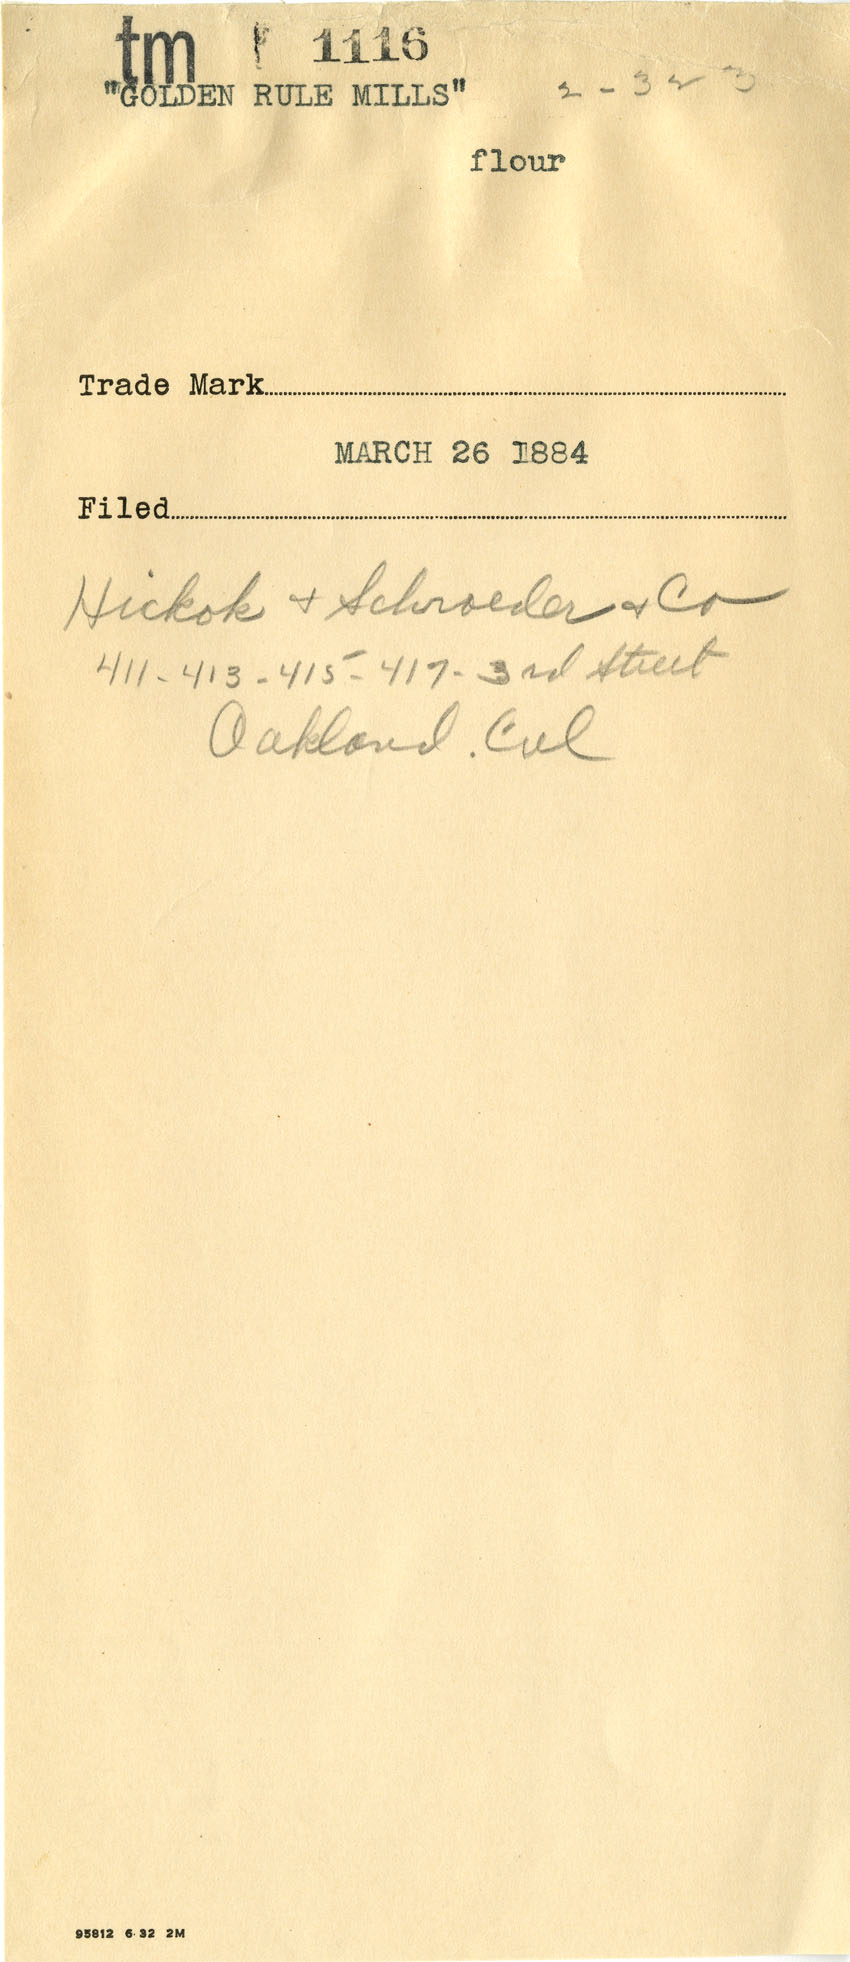 tm 1116
"GOLDEN RULE MILLS" 2-323
flour
Trade Mark
MARCH 26 1884
Filed
Hickok + Schroeder + Co
411-413-415-417-3rd Street
Oakland. Cal
95812 6-32 2M